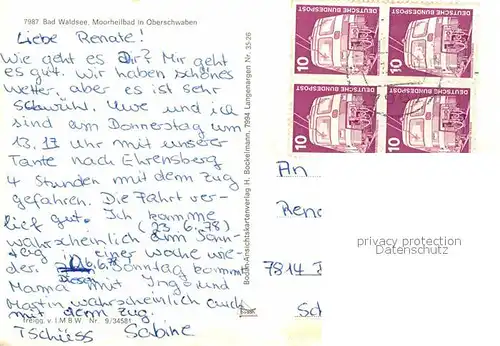 7987 Bad Waldsee, Moorheilbad in Oberschwaben
Liebe Renate!
Wie geht es Dir? Mir geht
es gut. wir haben schönes
Wetter, aber es ist sehr
schwühl. Uwe und ich
sind am Donnerstag um
13.17 Uhr mit unserer
Tante nach Ehrensberg
4 Stunden mit dem Zug
gefahren. Die Fahrt ver-
lief gut. Ich komme
(23.6.78)
wahrscheinlich am Sonn-
in einer woche wie-
der. Sonntag kommt
Diesen
Mama mit Ingo und
Martin wahrscheinlich auch
mit dem zug.
Tschüss Sabine
Freigg. v. I.M.B.W. Nr. 9/34581
Boden-Ansichtskartenverlag H. Bockelmann, 7994 Langenargen Nr. 33-26
DEUTSCHE BUNDESPOST 10
DEUTSCHE BUNDESPOST 10
DEUTSCHE BUNDESPOST 10
DEUTSCHE BUNDESPOST 10
An
Ren
privacy protection
Datenschutz
7814